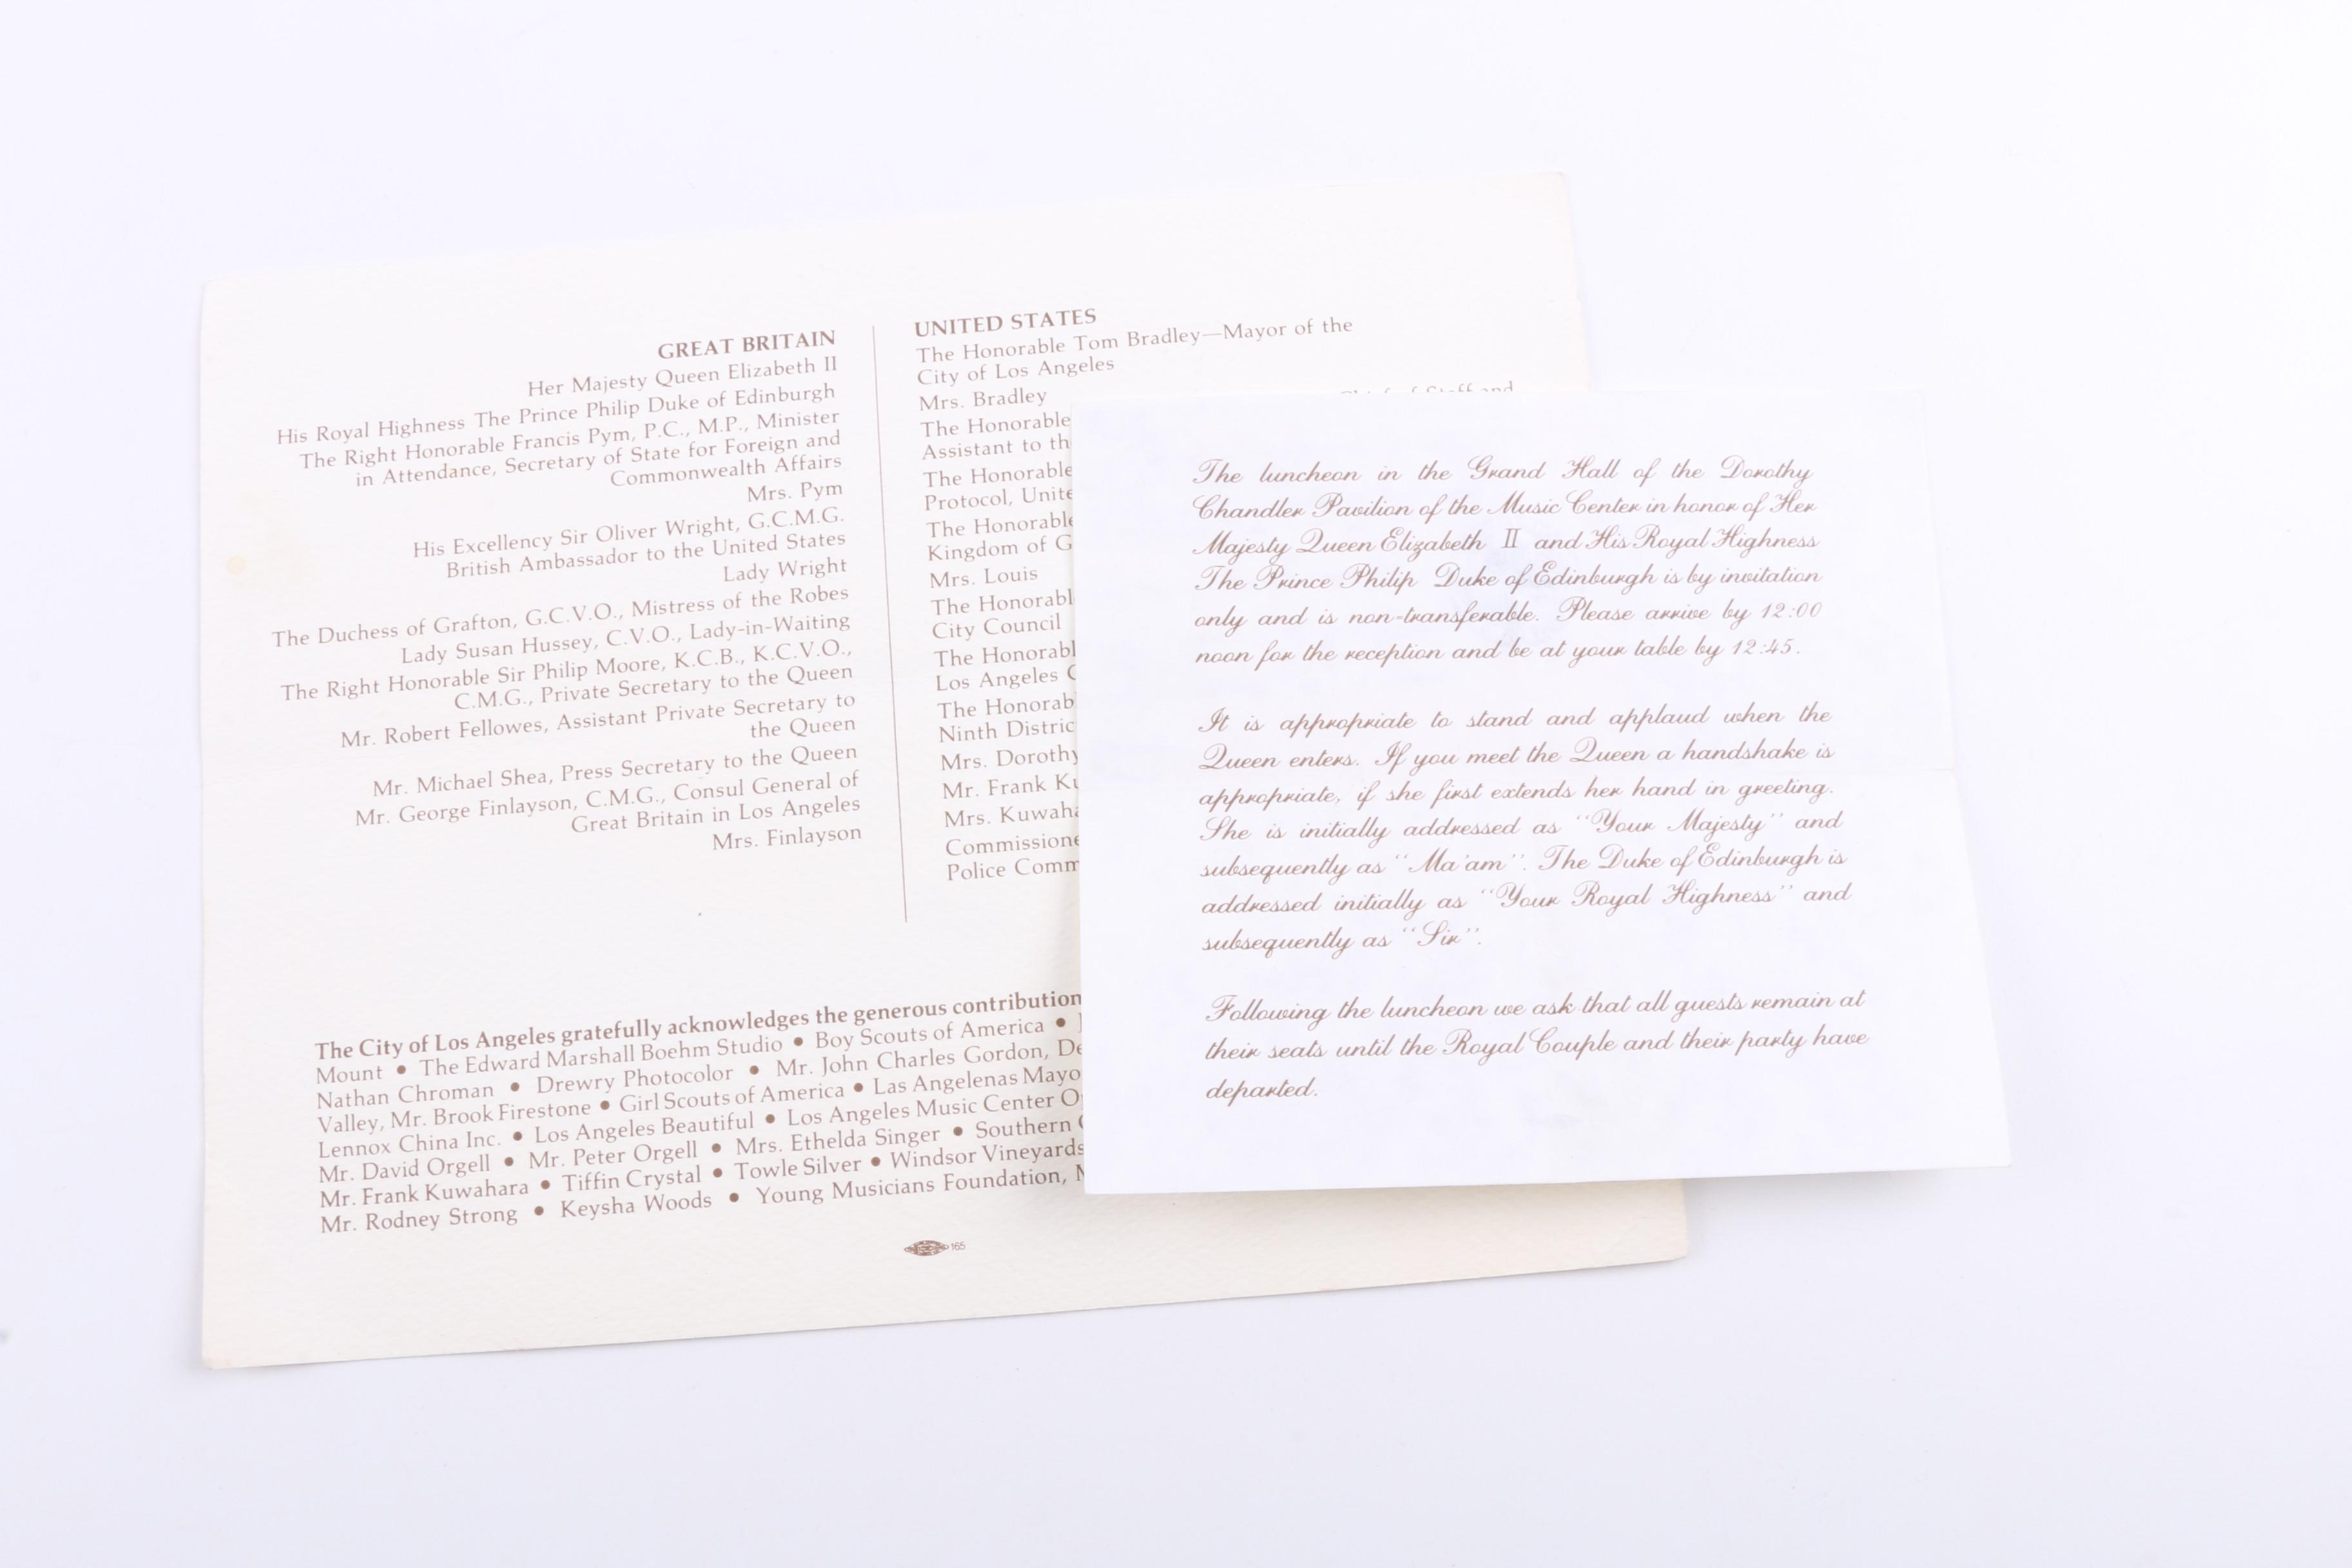 GREAT BRITAIN
Her Majesty Queen Elizabeth II
His Royal Highness The Prince Philip Duke of Edinburgh
The Right Honorable Francis Pym, P.C., M.P., Minister
in Attendance, Secretary of State for Foreign and
Commonwealth Affairs
Mrs. Pym
His Excellency Sir Oliver Wright, G.C.M.G.
British Ambassador to the United States
Lady Wright
The Duchess of Grafton, G.C.V.O., Mistress of the Robes
Lady Susan Hussey, C.V.O., Lady-in-Waiting
The Right Honorable Sir Philip Moore, K.C.B., K.C.V.O.,
C.M.G., Private Secretary to the Queen
Mr. Robert Fellowes, Assistant Private Secretary to
the Queen
Mr. Michael Shea, Press Secretary to the Queen
Mr. George Finlayson, C.M.G., Consul General of
Great Britain in Los Angeles
Mrs. Finlayson
UNITED STATES
The Honorable Tom Bradley—Mayor of the
City of Los Angeles
Mrs. Bradley
The Honorable
Assistant to th
The Honorable
Protocol, Unite
The Honorable
Kingdom of G
Mrs. Louis
The Honorabl
City Council
The Honorabl
Los Angeles C
The Honorab
Ninth Distric
Mrs. Dorothy
Mr. Frank Ku
Mrs. Kuwaha
Commissione
Police Comm
The City of Los Angeles gratefully acknowledges the generous contribution
Mount • The Edward Marshall Boehm Studio • Boy Scouts of America •
Nathan Chroman • Drewry Photocolor • Mr. John Charles Gordon, De
Valley, Mr. Brook Firestone • Girl Scouts of America • Las Angelenas Mayo
Lennox China Inc. • Los Angeles Beautiful • Los Angeles Music Center O
Mr. David Orgell • Mr. Peter Orgell • Mrs. Ethelda Singer • Southern
Mr. Frank Kuwahara • Tiffin Crystal • Towle Silver • Windsor Vineyards
Mr. Rodney Strong • Keysha Woods • Young Musicians Foundation,
165
The luncheon in the Grand Hall of the Dorothy
Chandler Pavilion of the Music Center in honor of Her
Majesty Queen Elizabeth II and His Royal Highness
The Prince Philip Duke of Edinburgh is by invitation
only and is non-transferable. Please arrive by 12:00
noon for the reception and be at your table by 12:45.
It is appropriate to stand and applaud when the
Queen enters. If you meet the Queen a handshake is
appropriate, if she first extends her hand in greeting.
She is initially addressed as "Your Majesty" and
subsequently as "Ma'am". The Duke of Edinburgh is
addressed initially as "Your Royal Highness" and
subsequently as "Sir".
Following the luncheon we ask that all guests remain at
their seats until the Royal Couple and their party have
departed.